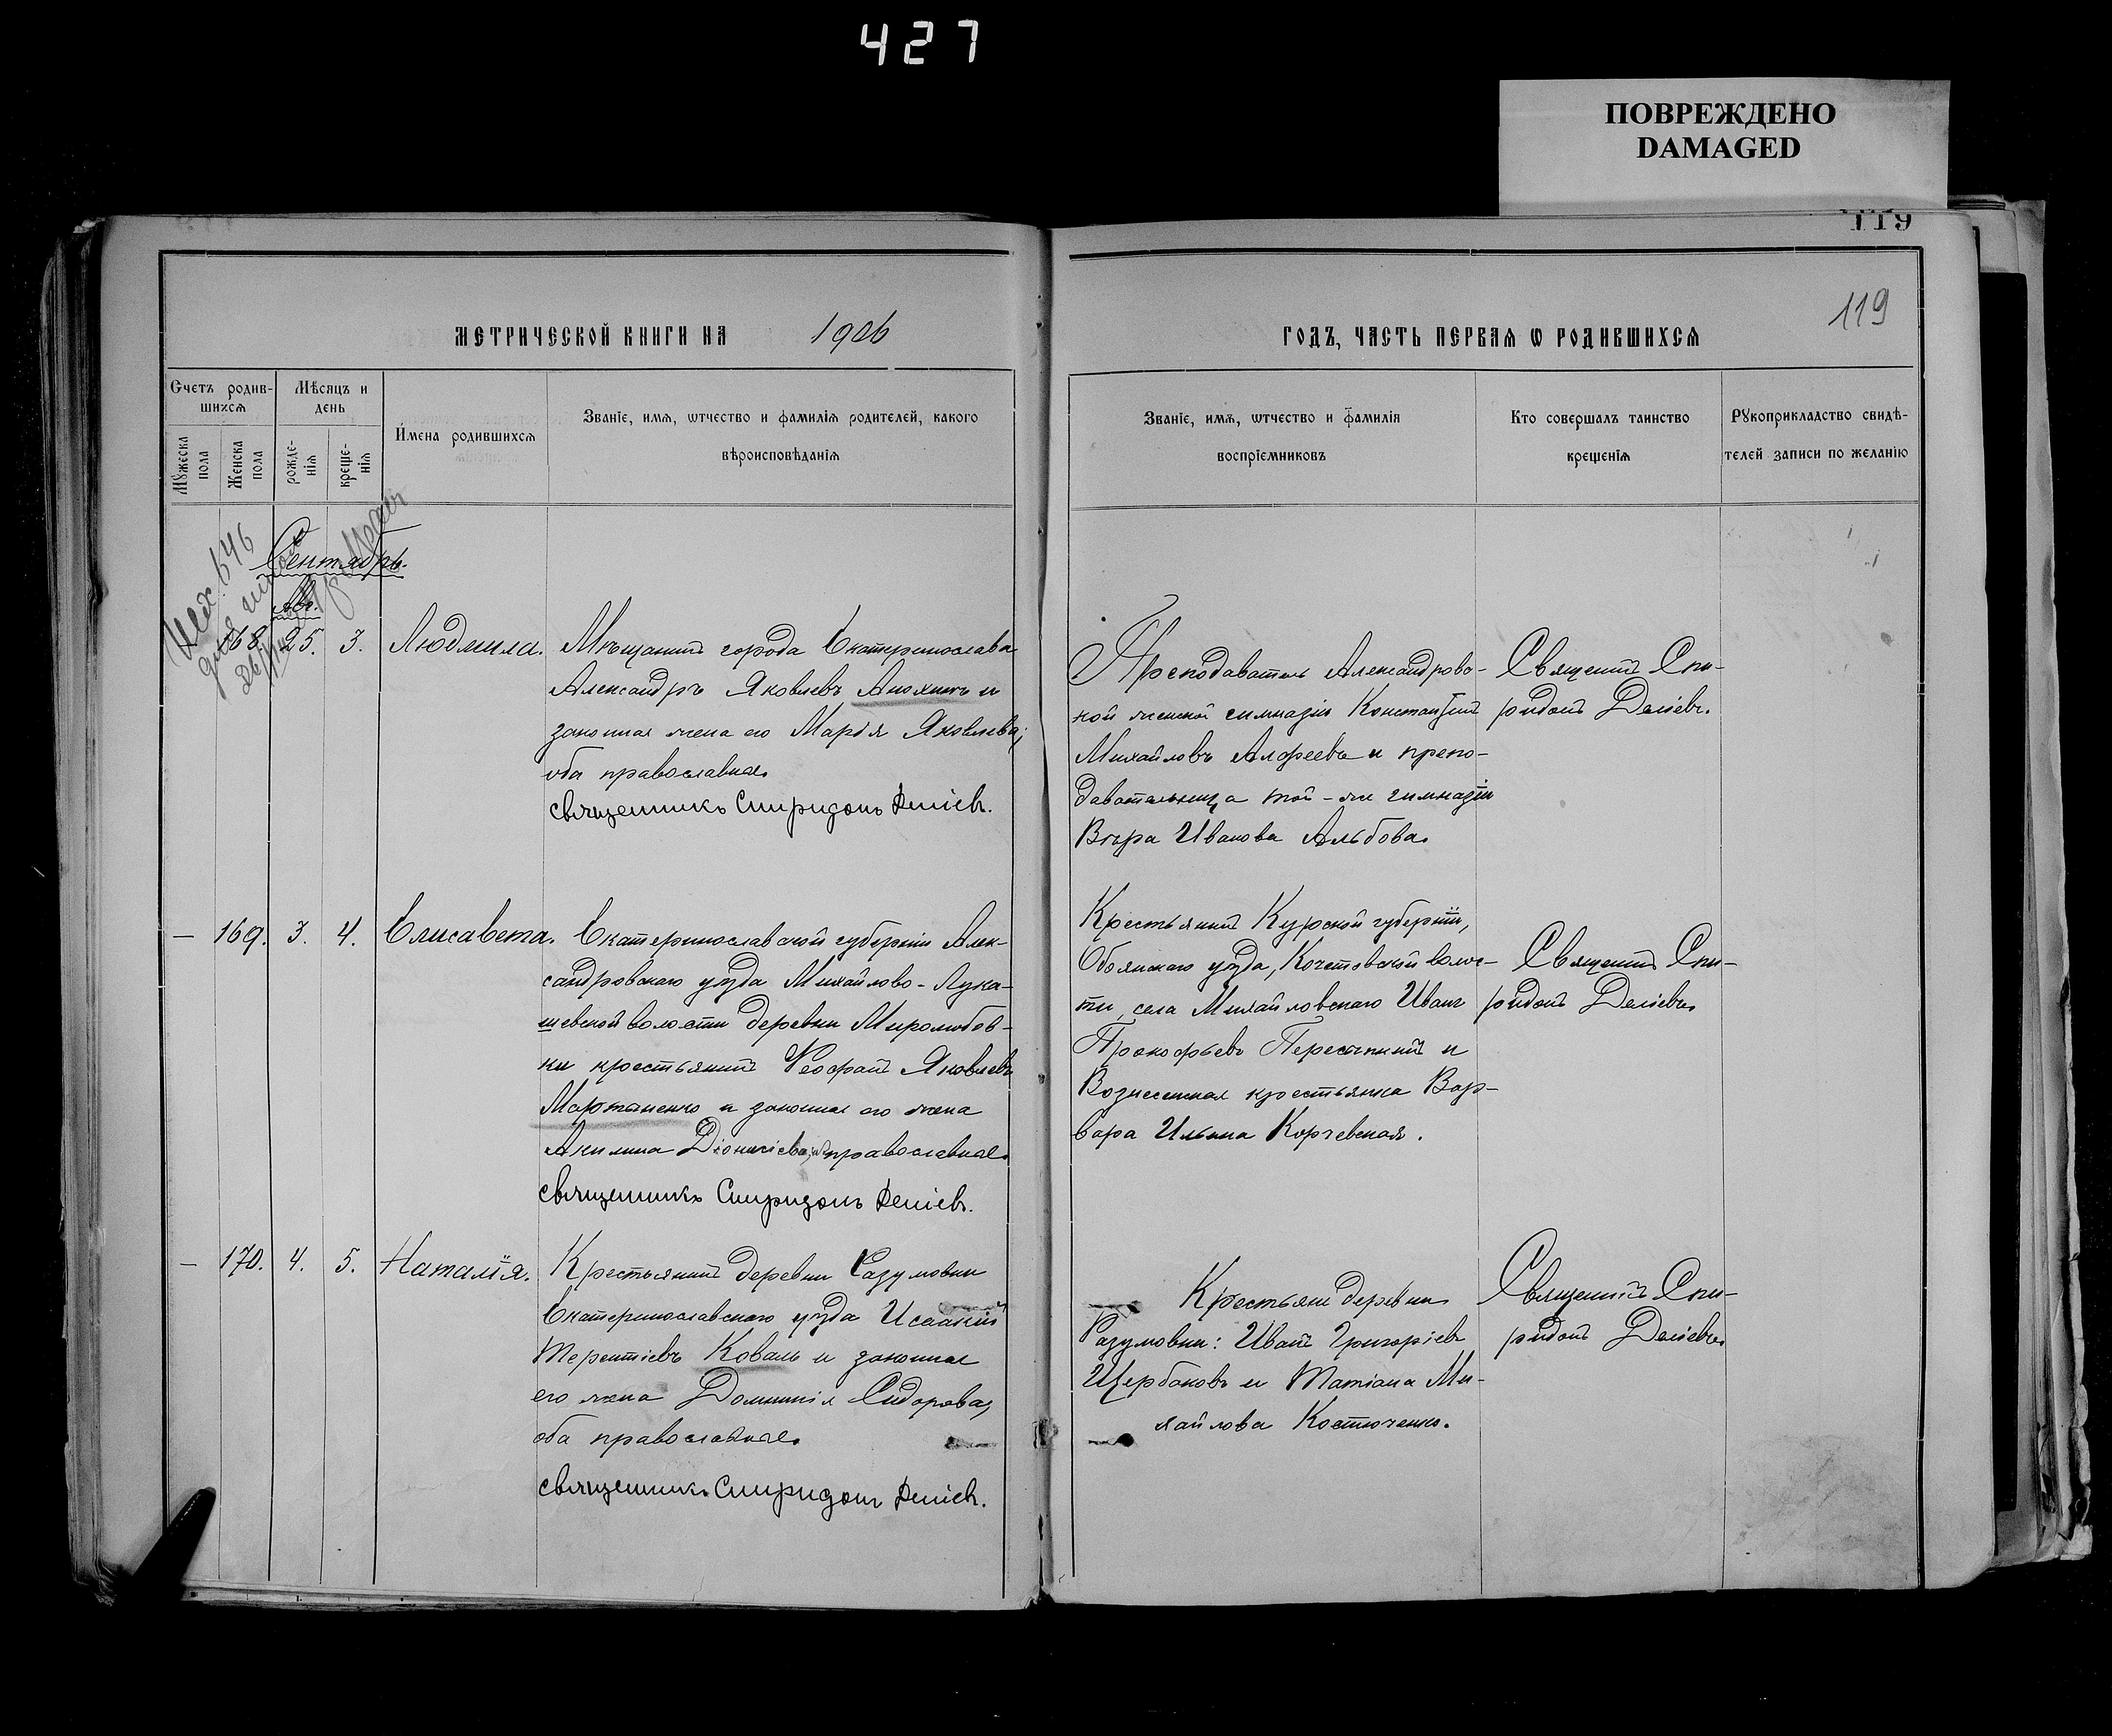 427
ПОВРЕЖДЕНО
DAMAGED
119
119
МЕТРИЧЕСКОЙ КНИГИ НА 1906
ГОДЪ, ЧАСТЬ ПЕРВАЯ Ѡ РОДИВШИХСЯ
Счетъ родив-
шихся
Мѣсяцъ и
день
Мужеска
пола
Женска
пола
рожде-
нія
креще-
нія
Имена родившихся
Званіе, имя, ѡтчество и фамилія родителей, какого
вѣроисповѣданія
Званіе, имя, ѡтчество и фамилія
воспріемниковъ
Кто совершалъ таинство
крещенія
Рукоприкладство свидѣ-
телей записи по желанію
Исх. 646
Сентябрь.
Авг.
168 25. 3. Людмила.
Мѣщанинъ города Екатеринослава
Александръ Яковлевъ Анохинъ и
законная жена его Марія Яковлева;
оба православные.
священникъ Спиридонъ Деліевъ.
Преподаватель Александровс-
кой женской гимназіи Константинъ
Михайловъ Алфеевъ и препо-
давательница той-же гимназіи
Вѣра Иванова Альбова.
Священникъ Спи-
ридонъ Деліевъ.
— 169. 3. 4. Елисавета.
Екатеринославской губерніи Алек-
сандровскаго уѣзда Михайлово-Лука-
шевской волости деревни Миролюбов-
ки крестьянинъ Ѳеофанъ Яковлевъ
Мартыненко и законная его жена
Акилина Діонисіева, оба православные.
священникъ Спиридонъ Деліевъ.
Крестьянинъ Курской губерніи,
Обоянскаго уѣзда, Кочетовской волос-
ти, села Михайловскаго Иванъ
Прокофьевъ Пересыпкинъ и
Вознесенская крестьянка Вар-
вара Ильина Корчевская.
Священникъ Спи-
ридонъ Деліевъ.
— 170. 4. 5. Наталія.
Крестьянинъ деревни Разумовки
Екатеринославскаго уѣзда Исаакій
Терентіевъ Коваль и законная
его жена Домникія Сидорова,
оба православные.
священникъ Спиридонъ Деліевъ.
Крестьяне деревни
Разумовки: Иванъ Григоріевъ
Щербаковъ и Татіана Ми-
хайлова Костюченко.
Священникъ Спи-
ридонъ Деліевъ.